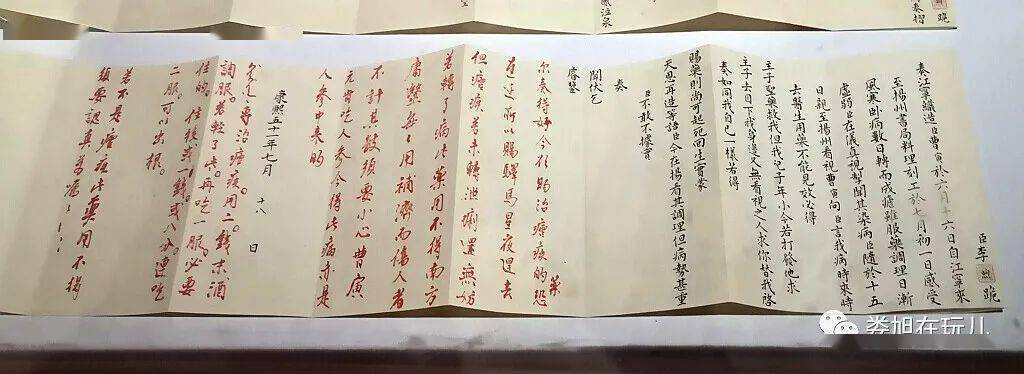 跪
奏摺
臣李煦跪
奏江寧織造臣曹寅於六月十六日自江寧來
至揚州書局料理刻工於七月初一日感受
風寒卧病數日轉而成瘧雖服藥調理日漸
虛弱臣在儀真視掣聞其染病臣隨於十五
日親至揚州看視曹寅向臣言我病時來時
去醫生用藥不能見效必得
主子聖藥救我但我兒子年小今若打發他求
主子去目下我身邊又無看視之人求你替我啟
奏如同我自己一樣若得
賜藥則尚可起死回生實蒙
天恩再造等語臣今在揚看其調理但病勢甚重
臣不敢不據實
奏
聞伏乞
睿鑒
尔奏得好今欲賜治瘧疾的藥恐
遲延所以賜驛馬星夜趕去
但瘧疾若未轉泄痢還無妨
若轉了病此藥用不得南方
庸醫每每用補濟而傷人者
不計其數須要小心曹寅
元肯吃人參今得此病亦是
人參中來的
康熙五十一年七月十八日
專治瘧疾。用二錢末酒
調服。若輕了些。再吃一服。必要
住的。住後或一錢。或八分。連吃
二服。可以出根。
若不是瘧疾。此藥用不得
須要認真。萬囑
娄旭在玩儿